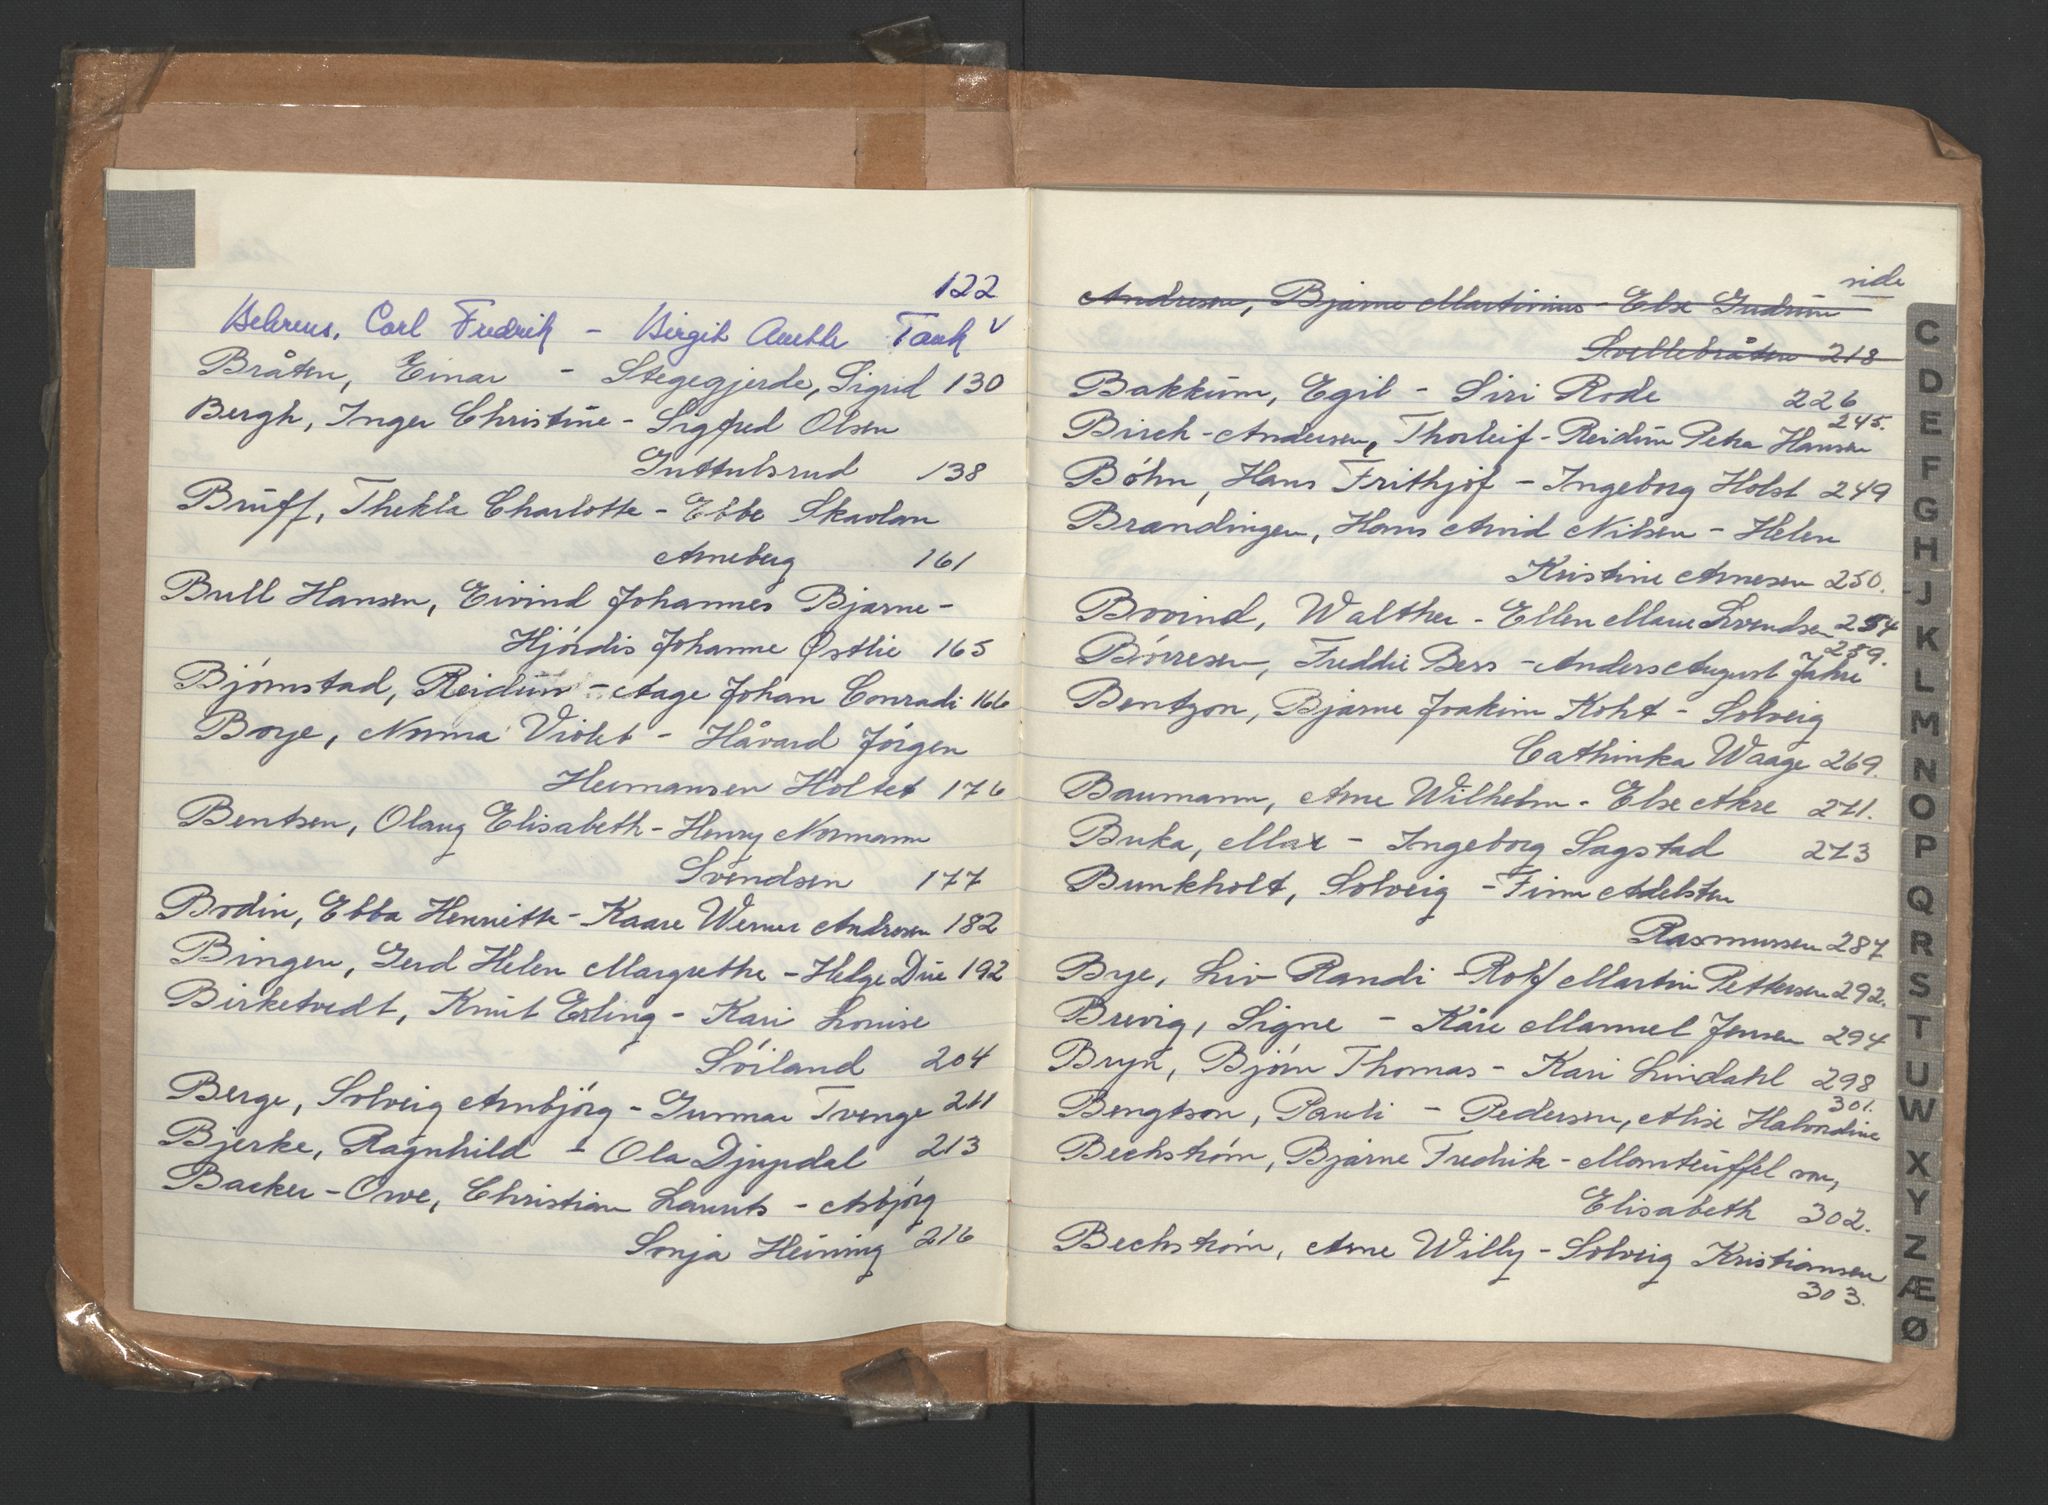 122
Behrens, Carl Fredrik - Birgit Tank v
Bråten, Einar - Stegegjerde, Sigrid 130
Bergh, Inger Christine - Sigfred Olsen
Juttulsrud 138
Bruff, Thekla Charlotte - Ebbe Skavlan
Arneberg 161
Bull Hansen, Eivind Johannes Bjarne -
Hjördis Johanne Østlie 165
Bjørnstad, Reidun - Aage Johan Conradi 166
Borge, Norma Violet - Håvard Jörgen
Hermansen Holtet 176
Bentsen, Olaug Elisabeth - Henry Normann
Svendsen 177
Bodin, Ebba Henriette - Kaare Werner Andresen 182
Bingen, Gerd Helen Margrethe - Helge Due 192
Birketvedt, Knut Erling - Kari Louise
Söiland 204
Berge, Solveig Arnbjörg - Gunnar Tvenge 211
Bjerke, Ragnhild - Ola Djupdal 213
Backer-Owe, Christian Laurits - Asbjörg
Sonja Heining 216
side
Andresen, Bjarne Martinius - Else Gudrun
Svellebråten 218
Bakkum, Egil - Siri Rode 226
Birch-Andersen, Thorleif - Reidun Petra Hansen 245.
Böhn, Hans Frithjof - Ingeborg Holst 249
Brandingen, Hans Arvid Nilsen - Helen
Kristine Arnesen 250.
Bovind, Walther - Ellen Marie Svendsen 254
Börresen, Freddie Bess - Anders August Jahre 259.
Bentzon, Bjarne Joakim Koht - Solveig
Cathinka Waage 269.
Baumann, Arne Wilhelm - Else Akre 271.
Buka, Max - Ingeborg Sagstad 273
Bunkholt, Solveig - Finn Adelsten
Rasmussen 287
Bye, Liv Randi - Rolf Martin Pettersen 292.
Brevig, Signe - Kåre Manuel Jensen 294
Bryn, Björn Thomas - Kari Lindahl 298
Bengtson, Pauli - Pedersen, Alise Halvordine 301.
Bechström, Bjarne Fredrik - Manteuffel von,
Elisabeth 302.
Bechström, Arne Willy - Solveig Kristiansen
303.
C
D
E
F
G
H
J
K
L
M
N
O
P
Q
R
S
T
U
W
X
Y
Z
Æ
Ø